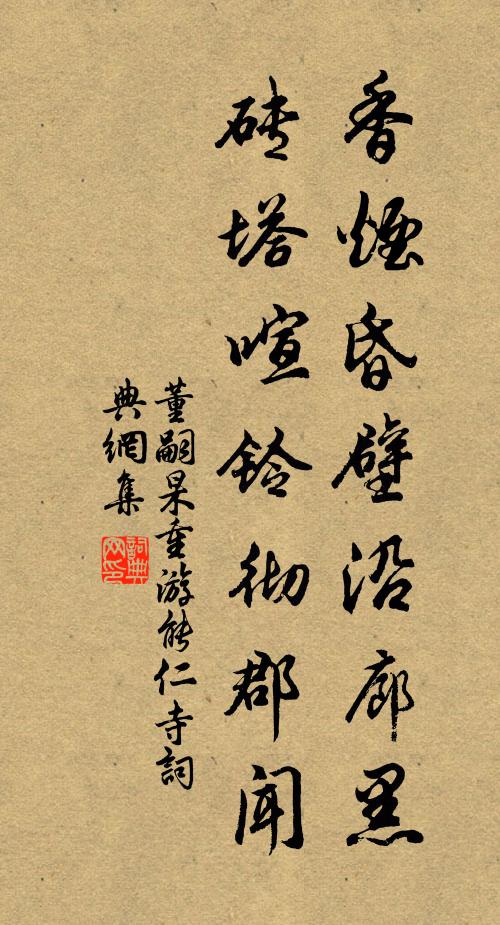 香煙昏壁沿廊黑
磚塔喧鈴彻郡聞
董嗣杲重游能仁寺詞
典網集
詞典
网印